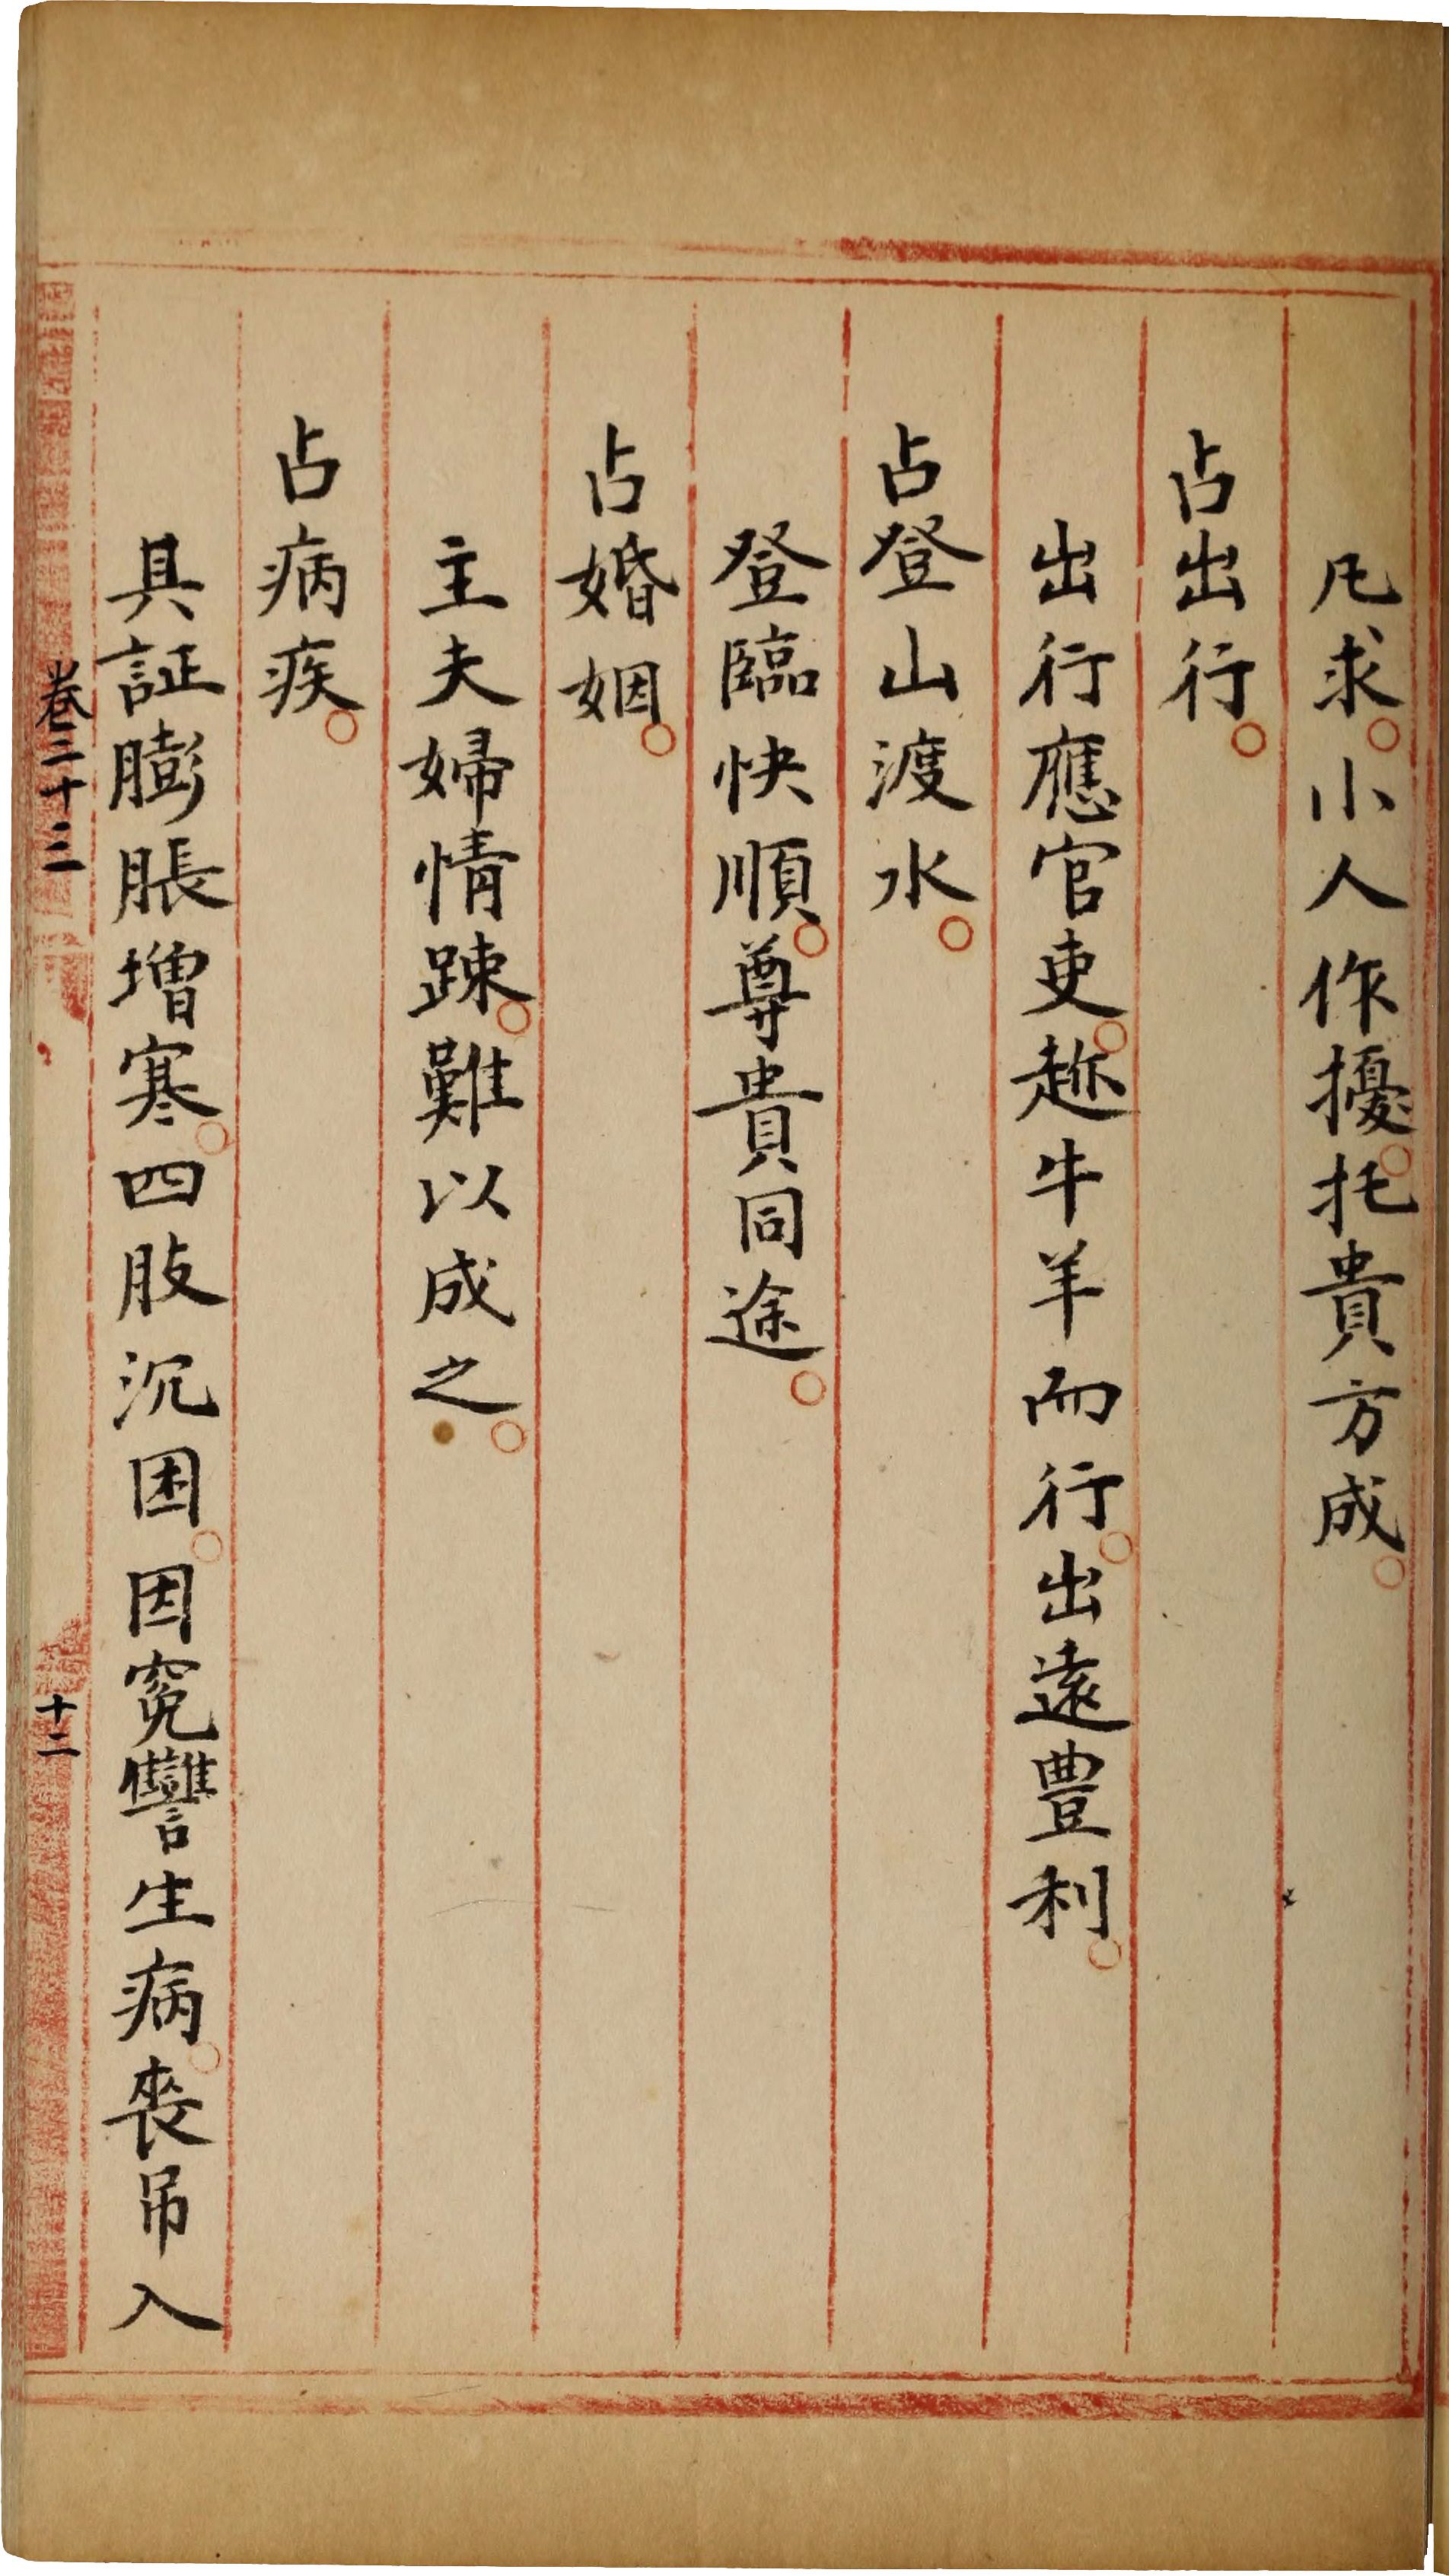 凡求小人作擾托貴方成
占出行
出行應官吏趂牛羊而行出遠豊利
占登山渡水
登臨快順尊貴同途
占婚姻
主夫婦情踈難以成之
占病疾
具証膨脹增寒四肢沉困因寃讐生病喪吊入
卷三十三
十二